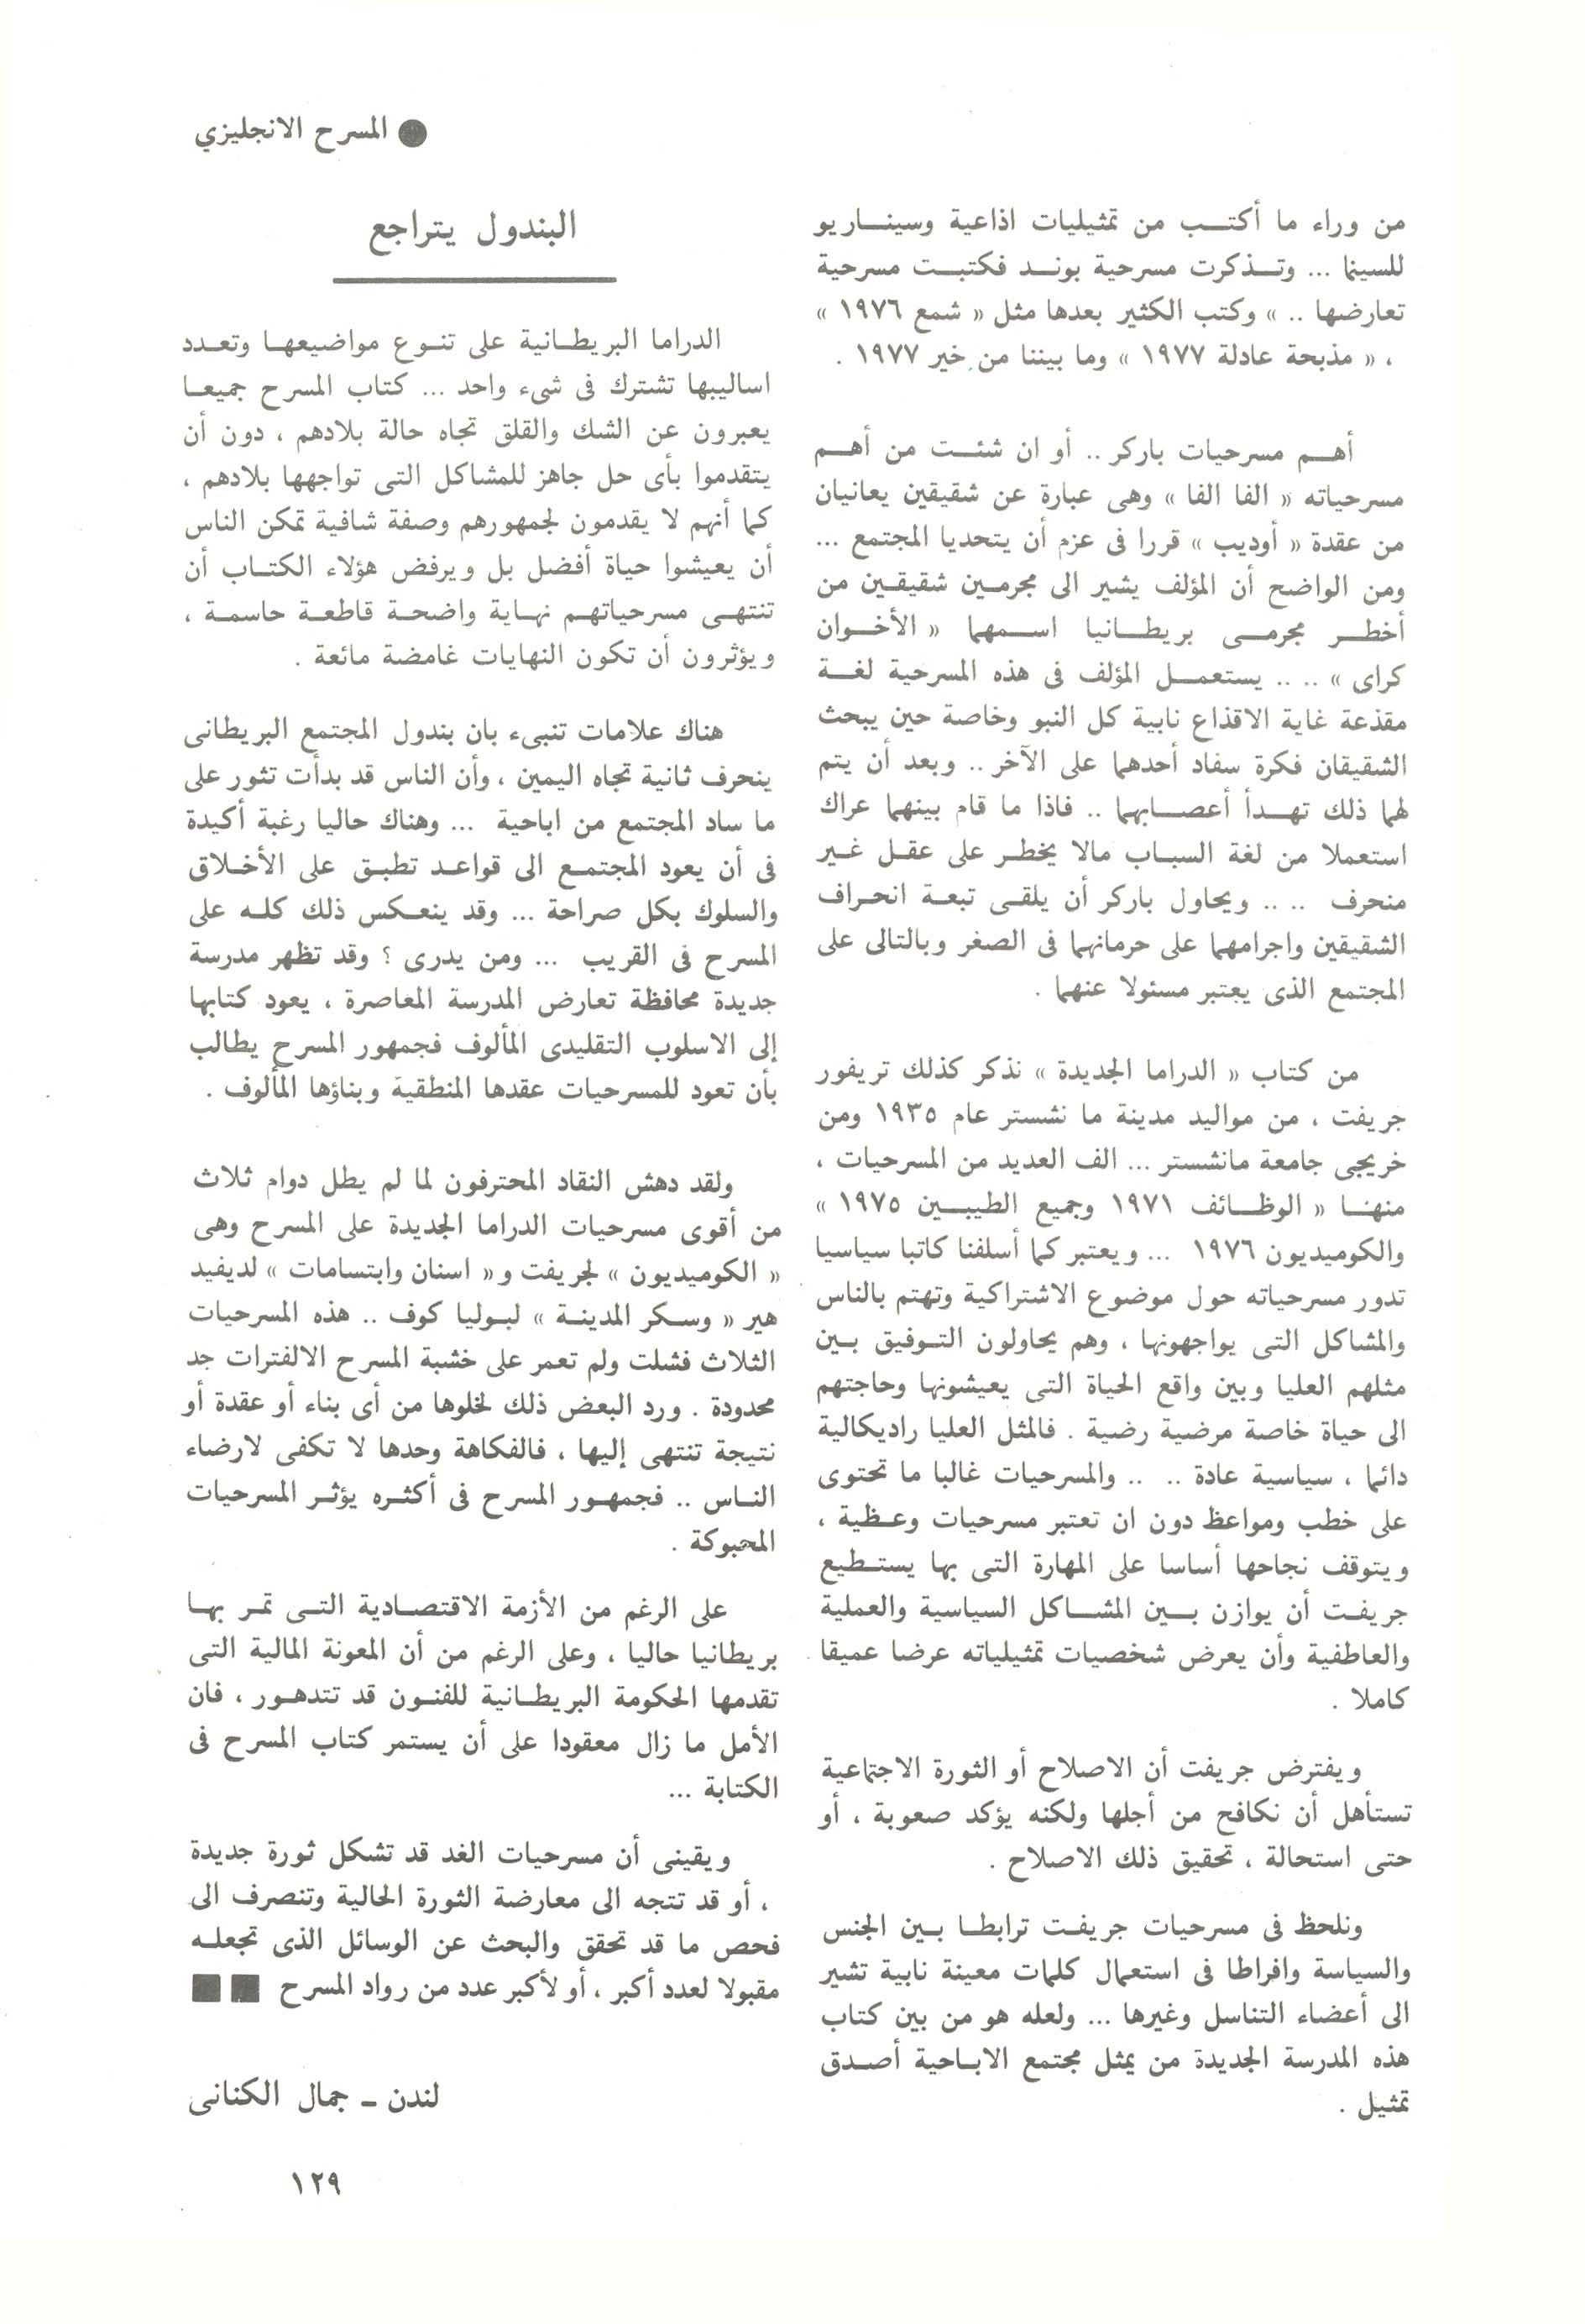 ● المسرح الانجليزي
من وراء ما أكتب من تمثيليات اذاعية وسيناريو
للسينما ... وتذكرت مسرحية بوند فكتبت مسرحية
تعارضها .. » وكتب الكثير بعدها مثل « شمع ١٩٧٦ »
، « مذبحة عادلة ١٩٧٧ » وما بيننا من خير ١٩٧٧ .
أهم مسرحيات باركر .. أو ان شئت من أهم
مسرحياته « الفا الفا » وهى عبارة عن شقيقين يعانيان
من عقدة « أوديب » قررا فى عزم أن يتحديا المجتمع ...
ومن الواضح أن المؤلف يشير الى مجرمين شقيقين من
أخطر مجرمى بريطانيا اسمهما « الأخوان
كراى » .. .. يستعمل المؤلف فى هذه المسرحية لغة
مقذعة غاية الاقذاع نابية كل النبو وخاصة حين يبحث
الشقيقان فكرة سفاد أحدهما على الآخر .. وبعد أن يتم
لهما ذلك تهدأ أعصابهما .. فاذا ما قام بينهما عراك
استعملا من لغة السباب مالا يخطر على عقل غير
منحرف .. .. ويحاول باركر أن يلقى تبعة انحراف
الشقيقين واجرامهما على حرمانهما فى الصغر وبالتالى على
المجتمع الذى يعتبر مسئولا عنهما .
من كتاب « الدراما الجديدة » نذكر كذلك تريفور
جريفت ، من مواليد مدينة ما نشستر عام ١٩٣٥ ومن
خريجى جامعة مانشستر ... الف العديد من المسرحيات ،
منها « الوظائف ١٩٧١ وجميع الطيبين ١٩٧٥ »
والكوميديون ١٩٧٦ ... ويعتبر كما أسلفنا كاتبا سياسيا
تدور مسرحياته حول موضوع الاشتراكية وتهتم بالناس
والمشاكل التى يواجهونها ، وهم يحاولون التوفيق بين
مثلهم العليا وبين واقع الحياة التى يعيشونها وحاجتهم
الى حياة خاصة مرضية رضية . فالمثل العليا راديكالية
دائما ، سياسية عادة .. .. والمسرحيات غالبا ما تحتوى
على خطب ومواعظ دون ان تعتبر مسرحيات وعظية ،
ويتوقف نجاحها أساسا على المهارة التى بها يستطيع
جريفت أن يوازن بين المشاكل السياسية والعملية
والعاطفية وأن يعرض شخصيات تمثيلياته عرضا عميقا
كاملا .
ويفترض جريفت أن الاصلاح أو الثورة الاجتماعية
تستأهل أن نكافح من أجلها ولكنه يؤكد صعوبة ، أو
حتى استحالة ، تحقيق ذلك الاصلاح .
ونلحظ فى مسرحيات جريفت ترابطا بين الجنس
والسياسة وافراطا فى استعمال كلمات معينة نابية تشير
الى أعضاء التناسل وغيرها ... ولعله هو من بين كتاب
هذه المدرسة الجديدة من يمثل مجتمع الاباحية أصدق
تمثيل .
البندول يتراجع
الدراما البريطانية على تنوع مواضيعها وتعدد
اساليبها تشترك فى شىء واحد ... كتاب المسرح جميعا
يعبرون عن الشك والقلق تجاه حالة بلادهم ، دون أن
يتقدموا بأى حل جاهز للمشاكل التى تواجهها بلادهم ،
كما أنهم لا يقدمون لجمهورهم وصفة شافية تمكن الناس
أن يعيشوا حياة أفضل بل ويرفض هؤلاء الكتاب أن
تنتهى مسرحياتهم نهاية واضحة قاطعة حاسمة ،
ويؤثرون أن تكون النهايات غامضة مائعة .
هناك علامات تنبىء بان بندول المجتمع البريطانى
ينحرف ثانية تجاه اليمين ، وأن الناس قد بدأت تثور على
ما ساد المجتمع من اباحية ... وهناك حاليا رغبة أكيدة
فى أن يعود المجتمع الى قواعد تطبق على الأخلاق
والسلوك بكل صراحة ... وقد ينعكس ذلك كله على
المسرح فى القريب ... ومن يدرى ؟ وقد تظهر مدرسة
جديدة محافظة تعارض المدرسة المعاصرة ، يعود كتابها
إلى الاسلوب التقليدى المألوف فجمهور المسرح يطالب
بأن تعود للمسرحيات عقدها المنطقية وبناؤها المألوف .
ولقد دهش النقاد المحترفون لما لم يطل دوام ثلاث
من أقوى مسرحيات الدراما الجديدة على المسرح وهى
« الكوميديون » لجريفت و « اسنان وابتسامات » لديفيد
هير « وسكر المدينة » لبوليا كوف .. هذه المسرحيات
الثلاث فشلت ولم تعمر على خشبة المسرح الالفترات جد
محدودة . ورد البعض ذلك لخلوها من أى بناء أو عقدة أو
نتيجة تنتهى إليها ، فالفكاهة وحدها لا تكفى لارضاء
الناس .. فجمهور المسرح فى أكثره يؤثر المسرحيات
المحبوكة .
على الرغم من الأزمة الاقتصادية التى تمر بها
بريطانيا حاليا ، وعلى الرغم من أن المعونة المالية التى
تقدمها الحكومة البريطانية للفنون قد تتدهور ، فان
الأمل ما زال معقودا على أن يستمر كتاب المسرح فى
الكتابة ...
ويقينى أن مسرحيات الغد قد تشكل ثورة جديدة
، أو قد تتجه الى معارضة الثورة الحالية وتنصرف الى
فحص ما قد تحقق والبحث عن الوسائل الذى تجعله
مقبولا لعدد أكبر ، أو لأكبر عدد من رواد المسرح ■ ■
لندن ـ جمال الكنانى
١٢٩